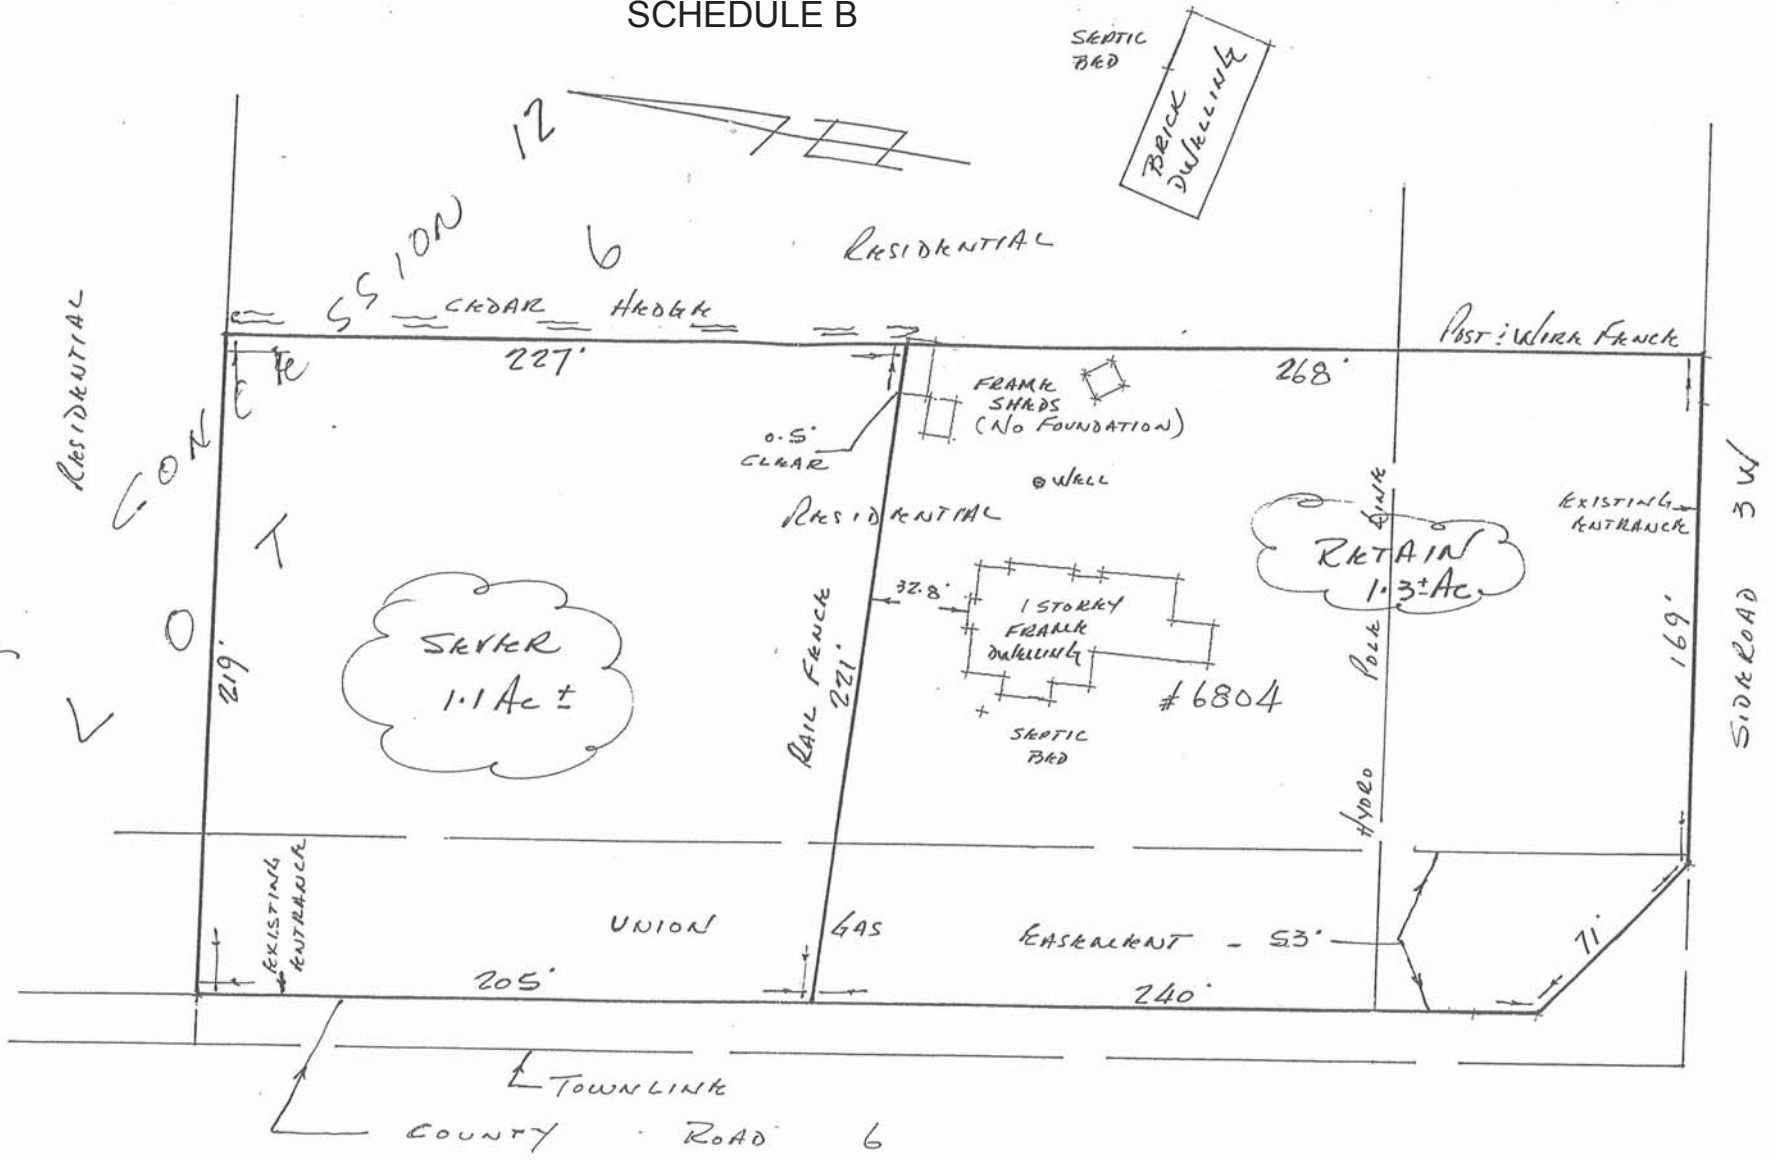 SCHEDULE B
SEPTIC
BED
BRICK
DWELLING
LOT 6
CONCESSION 12
RESIDENTIAL
RESIDENTIAL
CEDAR HEDGE
POST & WIRE FENCE
227'
268'
FRAME
SHEDS
(NO FOUNDATION)
0.5'
CLEAR
WELL
RESIDENTIAL
EXISTING
ENTRANCE
RETAIN
1.3± AC.
SEVER
1.1 AC ±
32.8'
1 STOREY
FRAME
DWELLING
#6804
SEPTIC
BED
RAIL FENCE
221'
219'
HYDRO POLE LINE
169'
SIDEROAD 3 W
EXISTING
ENTRANCE
UNION GAS EASEMENT - 53'
71'
205'
240'
TOWNLINE
COUNTY ROAD 6